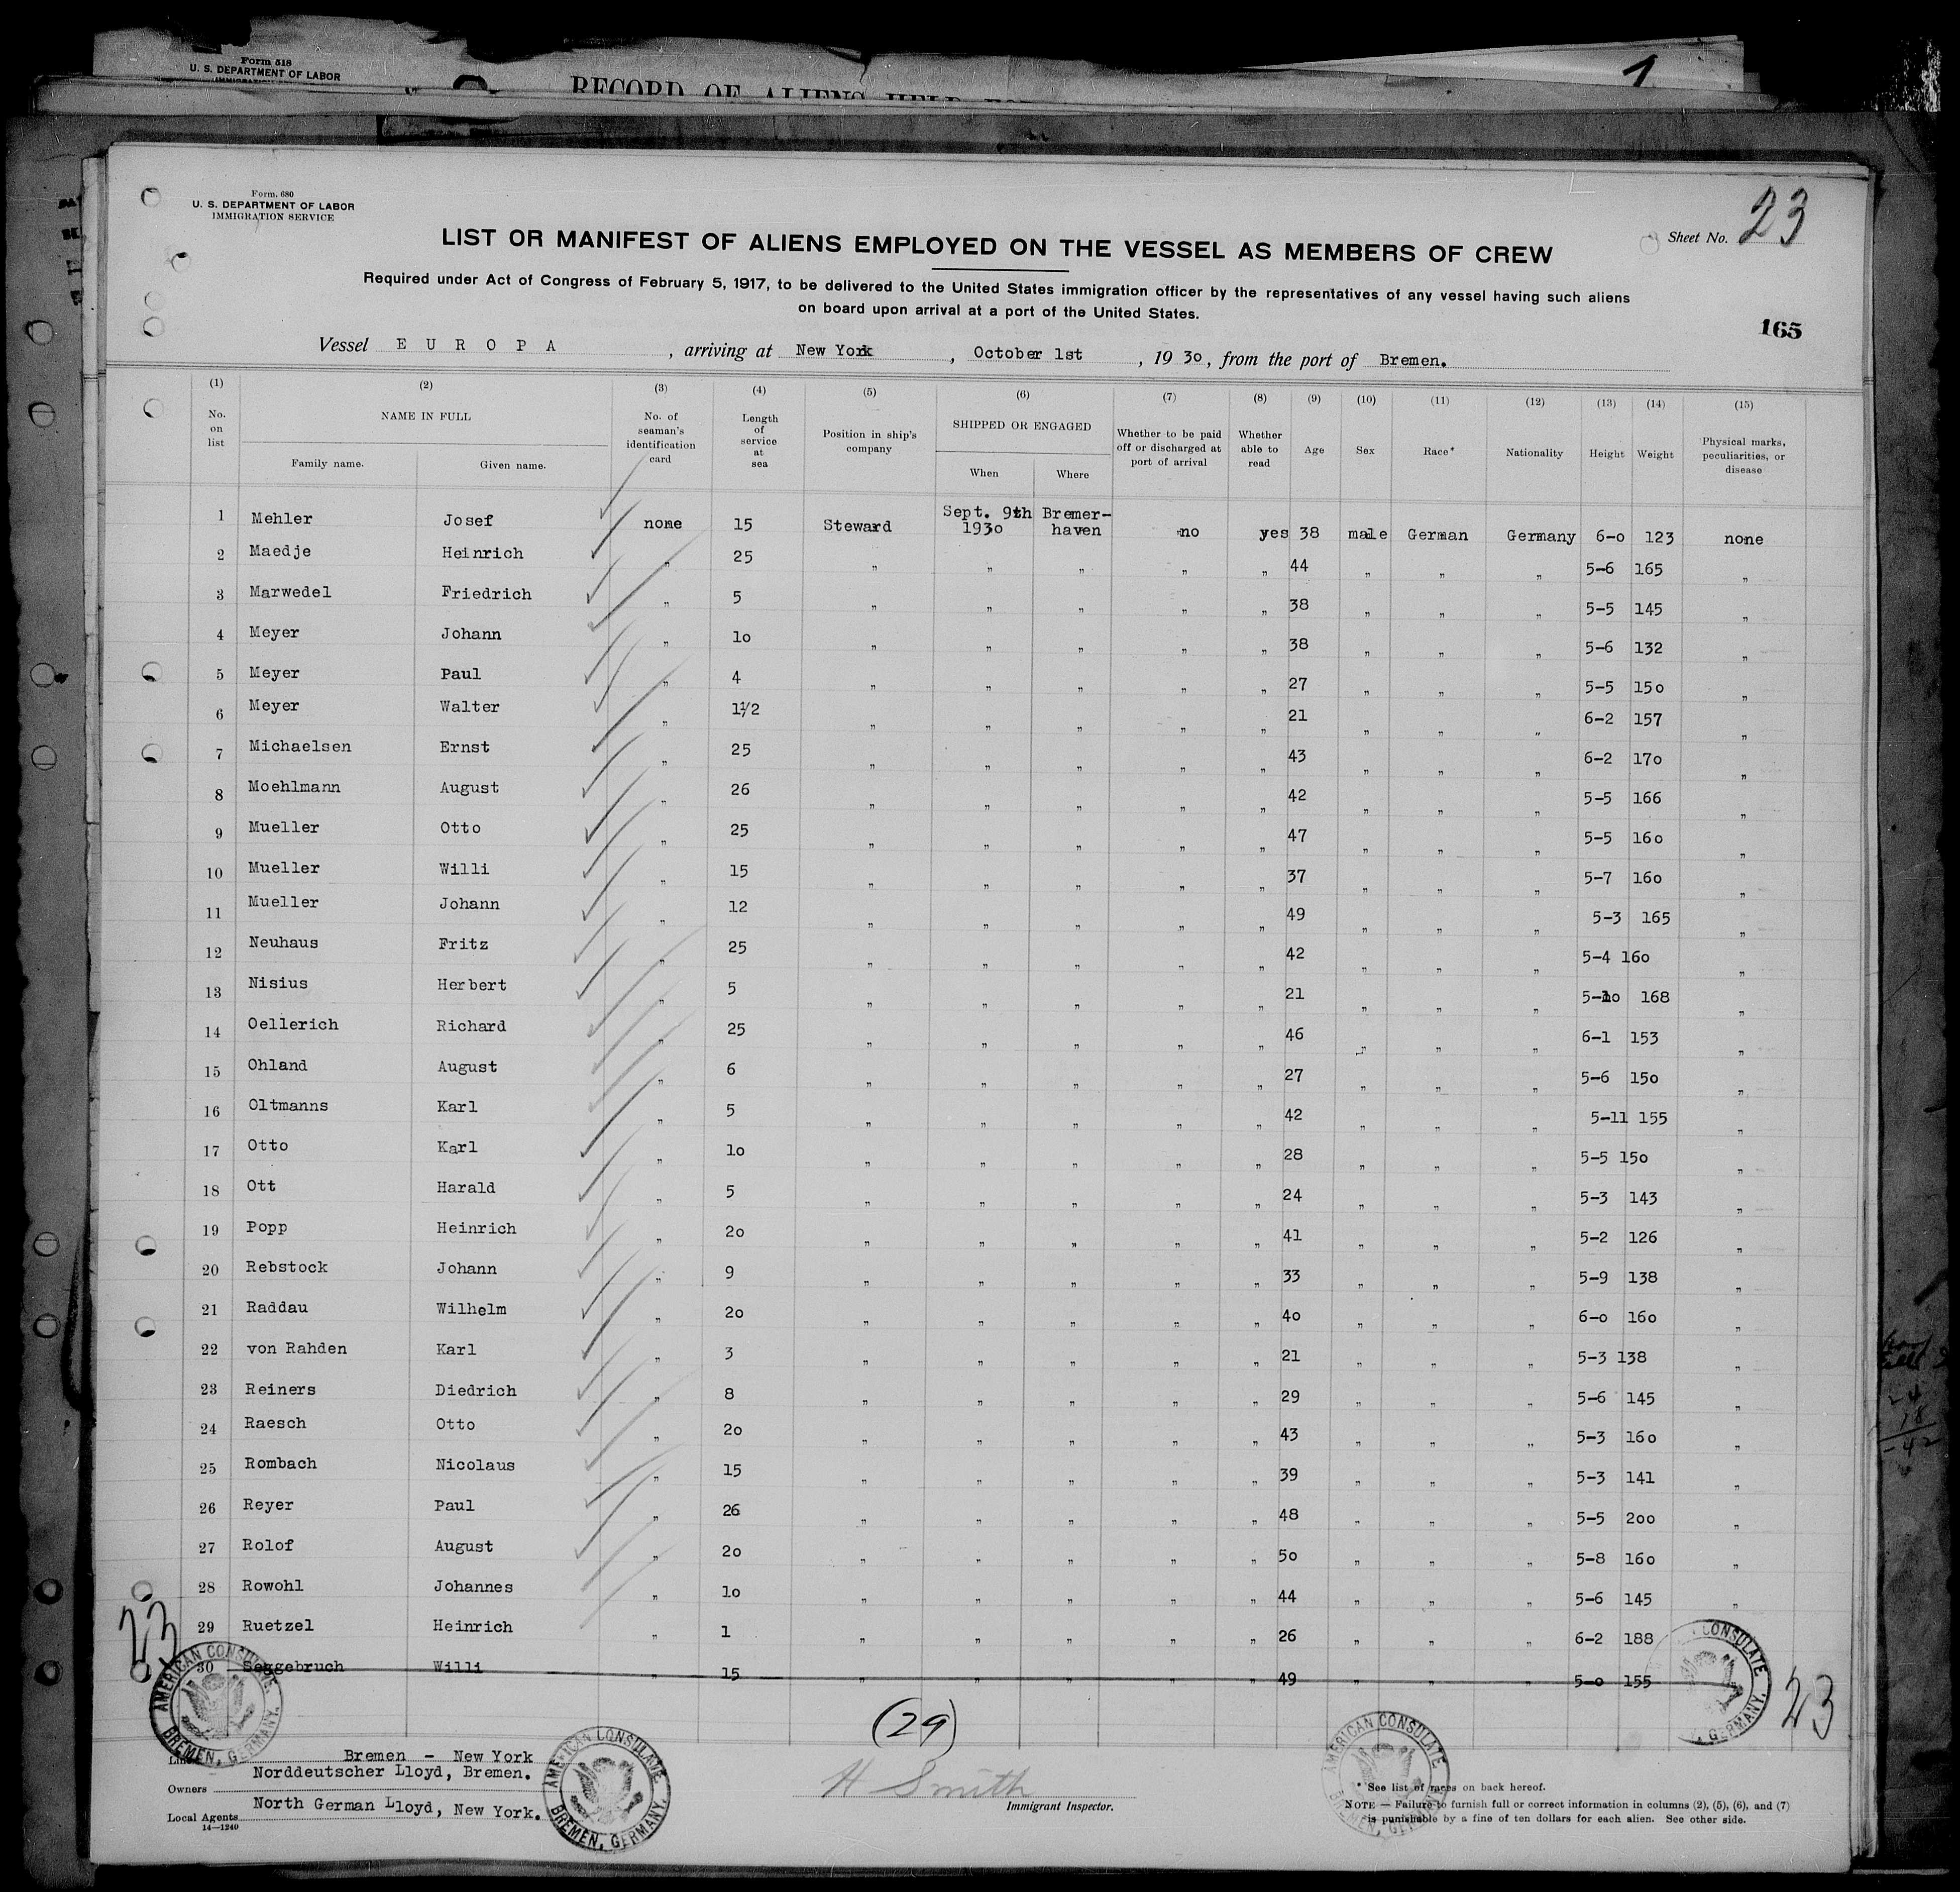 Form 518
U. S. DEPARTMENT OF LABOR
RECORD OF ALIENS HELD
1
Form. 680
U. S. DEPARTMENT OF LABOR
IMMIGRATION SERVICE
Sheet No. 23
LIST OR MANIFEST OF ALIENS EMPLOYED ON THE VESSEL AS MEMBERS OF CREW
Required under Act of Congress of February 5, 1917, to be delivered to the United States immigration officer by the representatives of any vessel having such aliens
on board upon arrival at a port of the United States.
165
Vessel E U R O P A , arriving at New York , October 1st , 19 30, from the port of Bremen.
(1) (2) (3) (4) (5) (6) (7) (8) (9) (10) (11) (12) (13) (14) (15)
No. on list NAME IN FULL Family name. Given name. No. of seaman's identification card Length of service at sea Position in ship's company SHIPPED OR ENGAGED When Where Whether to be paid off or discharged at port of arrival Whether able to read Age Sex Race* Nationality Height Weight Physical marks, peculiarities, or disease
1 Mehler Josef none 15 Steward Sept. 9th 1930 Bremer-haven no yes 38 male German Germany 6-0 123 none
2 Maedje Heinrich " 25 " " " " " 44 " " " 5-6 165 "
3 Marwedel Friedrich " 5 " " " " " 38 " " " 5-5 145 "
4 Meyer Johann " 10 " " " " " 38 " " " 5-6 132 "
5 Meyer Paul " 4 " " " " " 27 " " " 5-5 150 "
6 Meyer Walter " 1½ " " " " " 21 " " " 6-2 157 "
7 Michaelsen Ernst " 25 " " " " " 43 " " " 6-2 170 "
8 Moehlmann August " 26 " " " " " 42 " " " 5-5 166 "
9 Mueller Otto " 25 " " " " " 47 " " " 5-5 160 "
10 Mueller Willi " 15 " " " " " 37 " " " 5-7 160 "
11 Mueller Johann " 12 " " " " " 49 " " " 5-3 165 "
12 Neuhaus Fritz " 25 " " " " " 42 " " " 5-4 160 "
13 Nisius Herbert " 5 " " " " " 21 " " " 5-10 168 "
14 Oellerich Richard " 25 " " " " " 46 " " " 6-1 153 "
15 Ohland August " 6 " " " " " 27 " " " 5-6 150 "
16 Oltmanns Karl " 5 " " " " " 42 " " " 5-11 155 "
17 Otto Karl " 10 " " " " " 28 " " " 5-5 150 "
18 Ott Harald " 5 " " " " " 24 " " " 5-3 143 "
19 Popp Heinrich " 20 " " " " " 41 " " " 5-2 126 "
20 Rebstock Johann " 9 " " " " " 33 " " " 5-9 138 "
21 Raddau Wilhelm " 20 " " " " " 40 " " " 6-0 160 "
22 von Rahden Karl " 3 " " " " " 21 " " " 5-3 138 "
23 Reiners Diedrich " 8 " " " " " 29 " " " 5-6 145 "
24 Raesch Otto " 20 " " " " " 43 " " " 5-3 160 "
25 Rombach Nicolaus " 15 " " " " " 39 " " " 5-3 141 "
26 Reyer Paul " 26 " " " " " 48 " " " 5-5 200 "
27 Rolof August " 20 " " " " " 50 " " " 5-8 160 "
28 Rowohl Johannes " 10 " " " " " 44 " " " 5-6 145 "
29 Ruetzel Heinrich " 1 " " " " " 26 " " " 6-2 188
30 Seggebruch Willi " 15 " " " " " 49 " " " 5-0 155
23
23
(29)
AMERICAN CONSULATE BREMEN, GERMANY.
AMERICAN CONSULATE BREMEN, GERMANY.
AMERICAN CONSULATE BREMEN, GERMANY.
CONSULATE GERMANY.
Line Bremen - New York
Norddeutscher Lloyd, Bremen.
Owners
North German Lloyd, New York.
Local Agents
14—1240
H Smith
Immigrant Inspector.
* See list of races on back hereof.
NOTE — Failure to furnish full or correct information in columns (2), (5), (6), and (7)
is punishable by a fine of ten dollars for each alien. See other side.